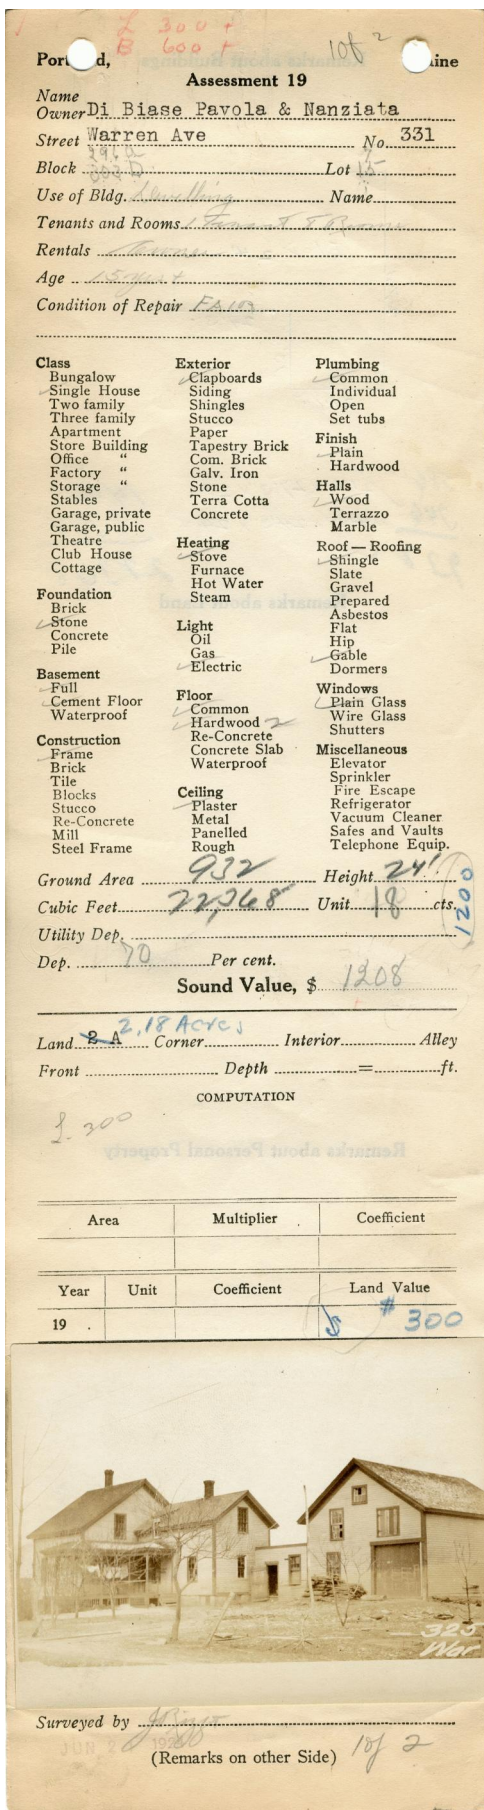 L 300 +
B 600 +
1 of 2
Port d, aine
Assessment 19
Name
Owner Di Biase Pavola & Nanziata
Street Warren Ave No. 331
Block Lot 15
Use of Bldg. Dwelling Name
Tenants and Rooms 1 Tenant 8 Rooms
Rentals Owner
Age 15 yrs +
Condition of Repair
Class
Bungalow
Single House
Two family
Three family
Apartment
Store Building
Office "
Factory "
Storage "
Stables
Garage, private
Garage, public
Theatre
Club House
Cottage
Foundation
Brick
Stone
Concrete
Pile
Basement
Full
Cement Floor
Waterproof
Construction
Frame
Brick
Tile
Blocks
Stucco
Re-Concrete
Mill
Steel Frame
Exterior
Clapboards
Siding
Shingles
Stucco
Paper
Tapestry Brick
Com. Brick
Galv. Iron
Stone
Terra Cotta
Concrete
Heating
Stove
Furnace
Hot Water
Steam
Light
Oil
Gas
Electric
Floor
Common
Hardwood 2
Re-Concrete
Concrete Slab
Waterproof
Ceiling
Plaster
Metal
Panelled
Rough
Plumbing
Common
Individual
Open
Set tubs
Finish
Plain
Hardwood
Halls
Wood
Terrazzo
Marble
Roof — Roofing
Shingle
Slate
Gravel
Prepared
Asbestos
Flat
Hip
Gable
Dormers
Windows
Plain Glass
Wire Glass
Shutters
Miscellaneous
Elevator
Sprinkler
Fire Escape
Refrigerator
Vacuum Cleaner
Safes and Vaults
Telephone Equip.
Ground Area 932 Height 24'
Cubic Feet 22,368 Unit 18 cts.
1200
Utility Dep.
Dep. 70 Per cent.
Sound Value, $ 1208
2.18 Acres
Land 2 A Corner Interior Alley
Front Depth = ft.
COMPUTATION
L. 300
Remarks about Personal Property
Area Multiplier Coefficient
Year Unit Coefficient Land Value
19 $ # 300
325
War
Surveyed by
JUN 2 192
(Remarks on other Side) 1 of 2